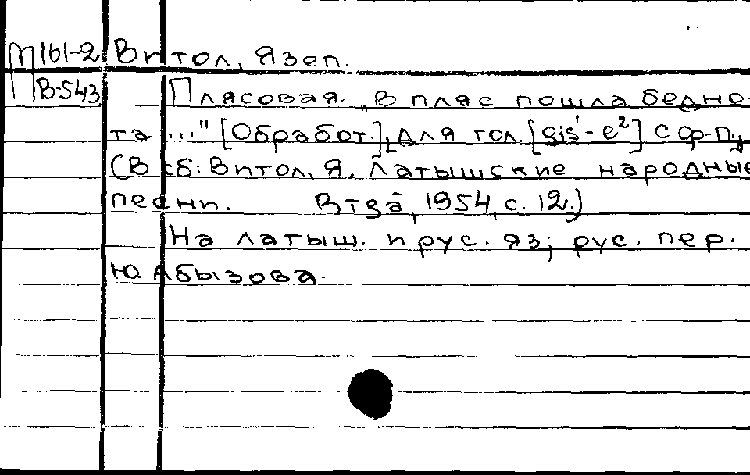 М161-2 Витол, Язеп.
В-543 Плясовая. „В пляс пошла бедно-
та ..." [Обработ.] Для гол. [gis¹-e²] с ф-п.
(В сб: Витол, Я. Латышские народные
песни. 1954, с. 12.)
На латыш. и рус. яз; рус. пер.
Ю Абызова.